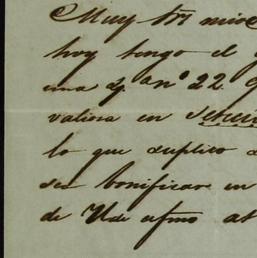 Muy Sr. mio
hoy tengo el g
una L/ a nº 22. 9
valiosa en Seten
lo que suplico a
sea bonificar en
de V. de afmo at